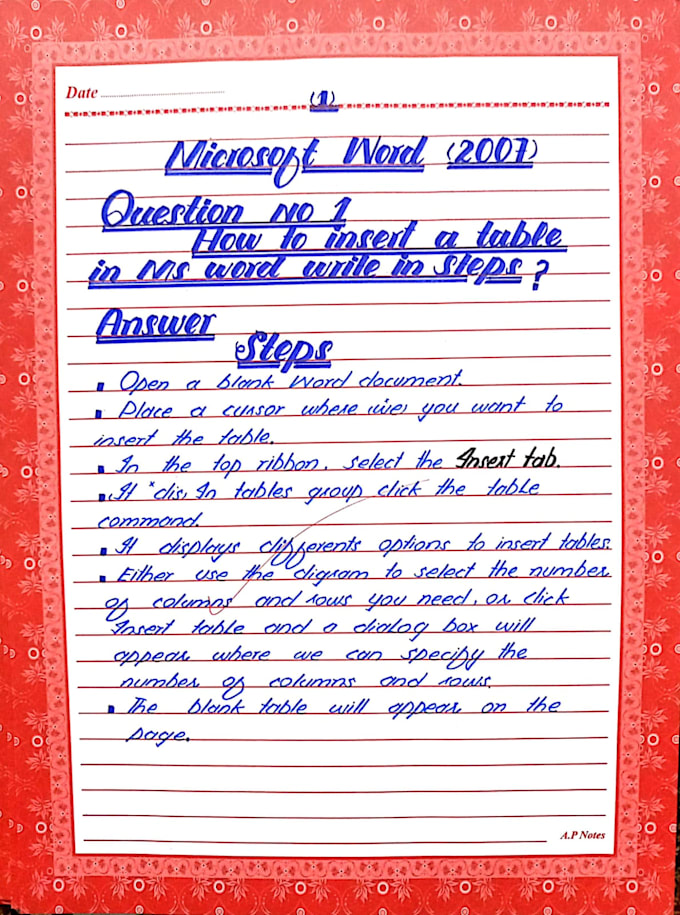 Date
(1)
Microsoft Word (2007)
Question NO 1
How to insert a table
in Ms word write in steps?
Answer
Steps
Open a blank Word document.
Place a cursor where (we) you want to
insert the table.
In the top ribbon, select the Insert tab.
It "dis, In tables group click the table
command.
It displays differents options to insert tables.
Either use the digram to select the number
of columns and rows you need, or click
Insert table and a dialog box will
appear where we can specify the
number of columns and rows.
The blank table will appear on the
page.
A.P Notes